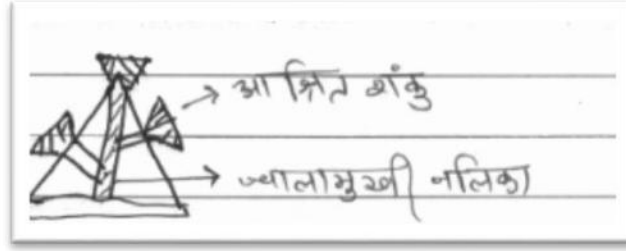 आश्रित शंकु
ज्वालामुखी नलिका